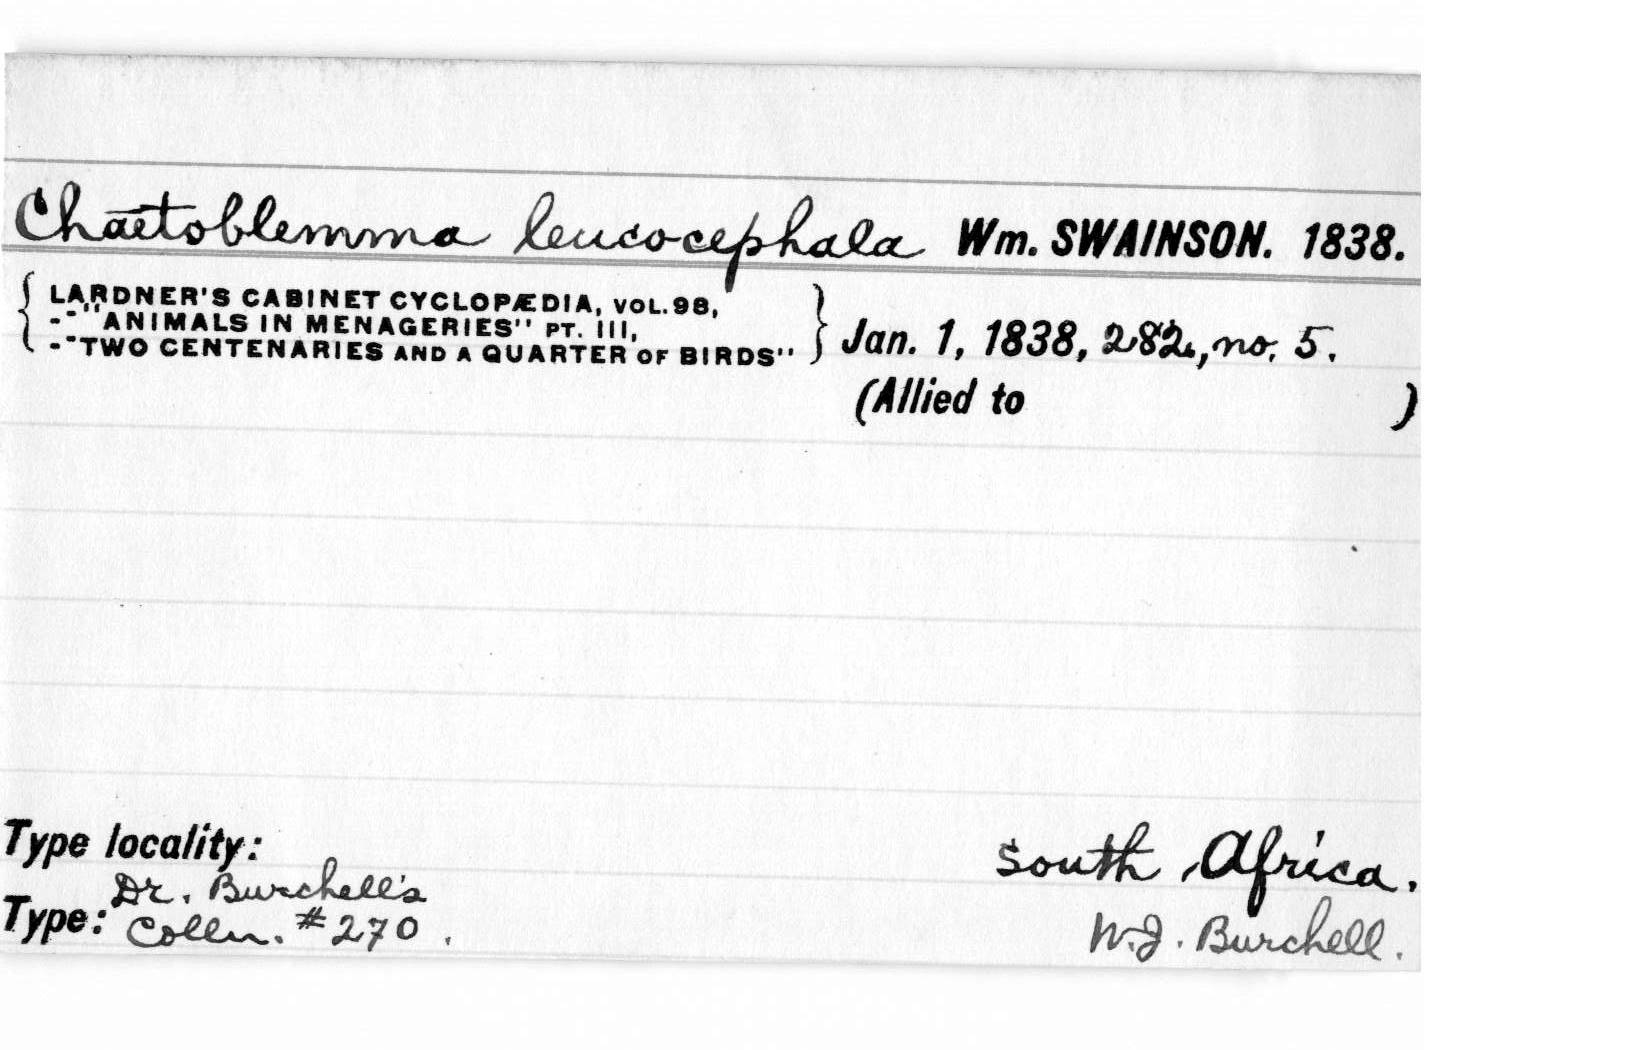 Chaetoblemma leucocephala Wm. SWAINSON. 1838.
{ LARDNER'S CABINET CYCLOPÆDIA, VOL. 98,
-"ANIMALS IN MENAGERIES" PT. III,
-"TWO CENTENARIES AND A QUARTER OF BIRDS" } Jan. 1, 1838, 282, no. 5.
(Allied to )
Type locality: South Africa.
Type: Dr. Burchell's
Colln. #270. W.J. Burchell.